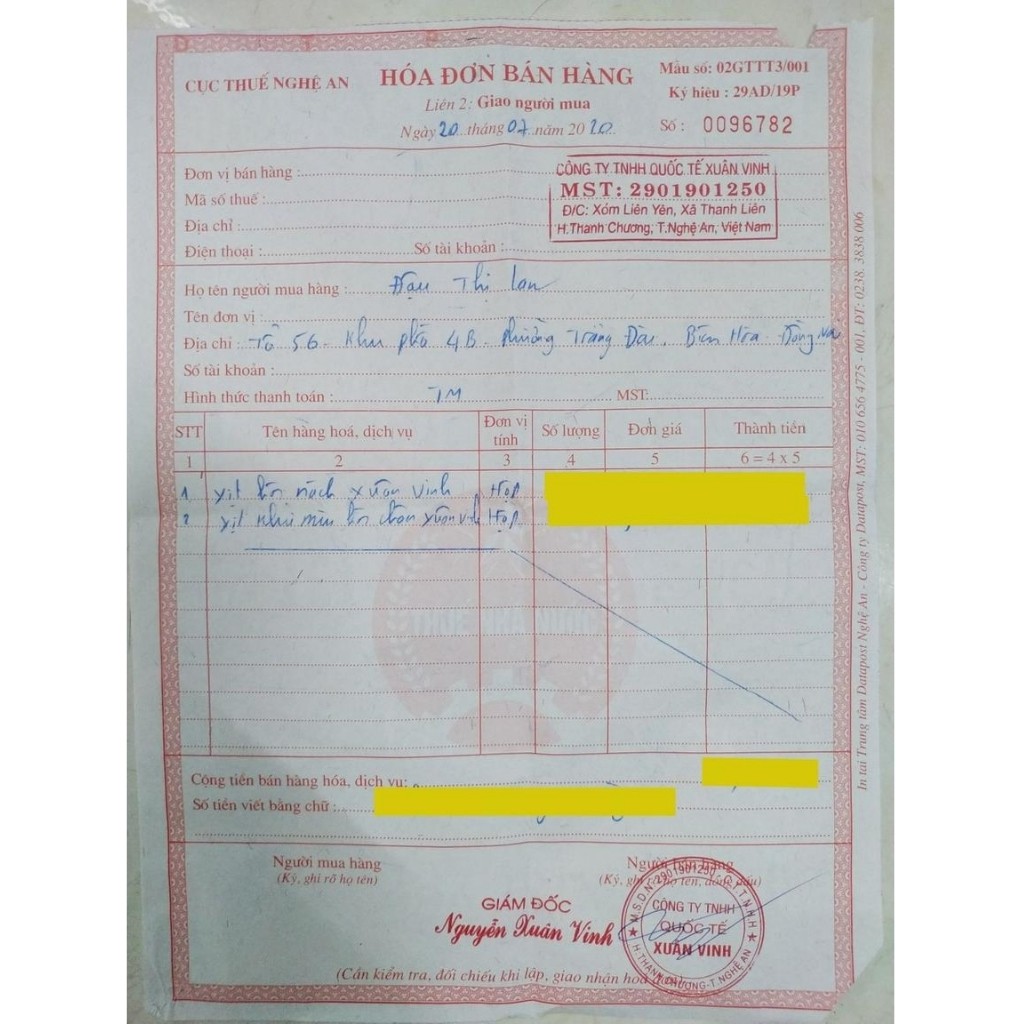 CỤC THUẾ NGHỆ AN
HÓA ĐƠN BÁN HÀNG
Liên 2: Giao người mua
Ngày 20 tháng 07 năm 2020
Mẫu số: 02GTTT3/001
Ký hiệu : 29AD/19P
Số : 0096782
Đơn vị bán hàng :
Mã số thuế :
Địa chỉ :
Điện thoại : Số tài khoản :
CÔNG TY TNHH QUỐC TẾ XUÂN VINH
MST: 2901901250
Đ/C: Xóm Liên Yên, Xã Thanh Liên
H.Thanh Chương, T.Nghệ An, Việt Nam
Họ tên người mua hàng : Đậu Thị Lan
Tên đơn vị :
Địa chỉ : Tổ 56 - Khu phố 4B - Phường Trảng Dài, Biên Hòa - Đồng Nai
Số tài khoản :
Hình thức thanh toán : TM MST:
STT Tên hàng hoá, dịch vụ Đơn vị tính Số lượng Đơn giá Thành tiền
1 2 3 4 5 6 = 4 x 5
1 Xịt hôi nách Xuân Vinh Hộp
2 Xịt khử mùi hôi chân Xuân Vinh Hộp
THUẾ NHÀ NƯỚC
Cộng tiền bán hàng hóa, dịch vụ:
Số tiền viết bằng chữ :
Người mua hàng
(Ký, ghi rõ họ tên)
Người bán hàng
(Ký, ghi rõ họ tên, đóng dấu)
GIÁM ĐỐC
Nguyễn Xuân Vinh
M.S.D.N: 2901901250 - C.T.T.N.H.H
CÔNG TY TNHH
QUỐC TẾ
XUÂN VINH
H.THANH CHƯƠNG-T.NGHỆ AN
(Cần kiểm tra, đối chiếu khi lập, giao nhận hoá đơn)
In tại Trung tâm Datapost Nghệ An - Công ty Datapost, MST: 010 656 4775 - 001. ĐT: 0238. 3838 006